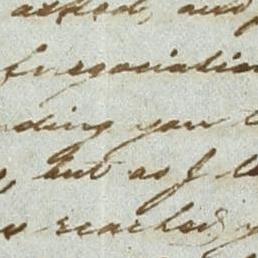 asked, and
for negociation
ding you
, but as I
reached